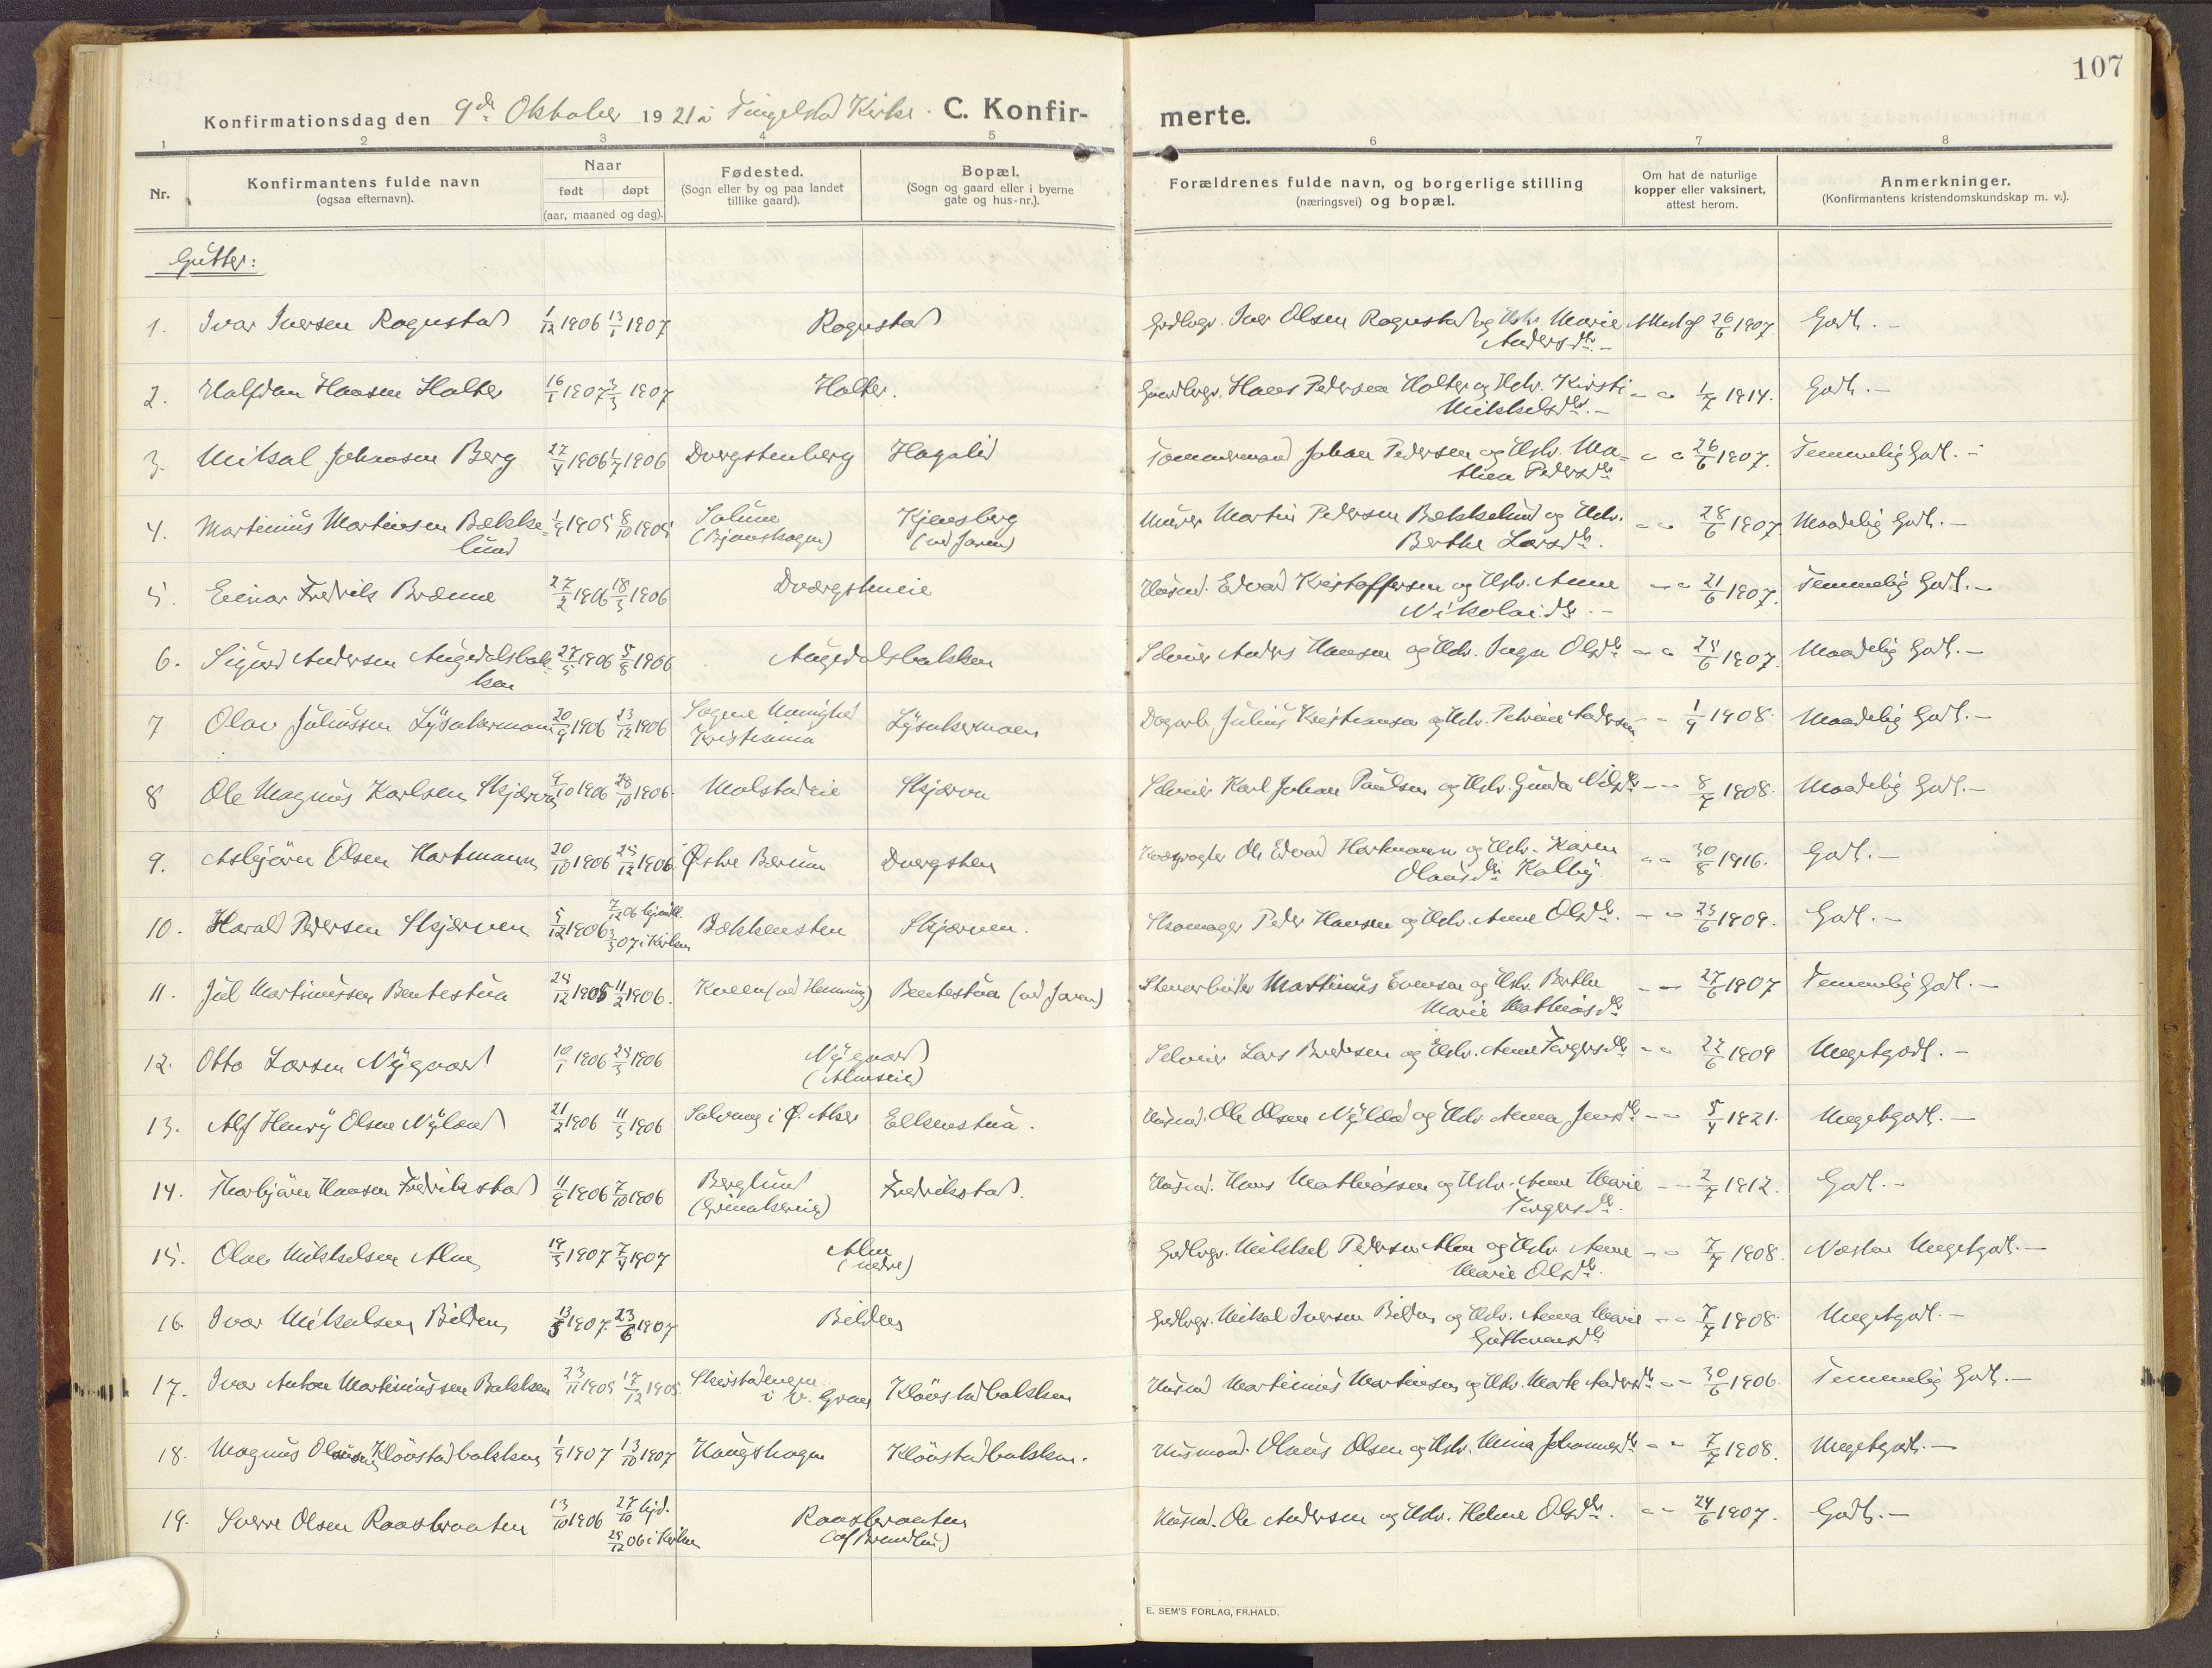 107
Konfirmationsdag den 9de Oktober 1921 i Tingelstad Kirke. C. Konfir-merte.
1 2 3 4 5 6 7 8
Nr.
Konfirmantens fulde navn
(ogsaa efternavn).
Naar
født døpt
(aar, maaned og dag).
Fødested.
(Sogn eller by og paa landet
tillike gaard).
Bopæl.
(Sogn og gaard eller i byerne
gate og hus-nr.).
Forældrenes fulde navn, og borgerlige stilling
(næringsvei) og bopæl.
Om hat de naturlige
kopper eller vaksinert,
attest herom.
Anmerkninger.
(Konfirmantens kristendomskundskap m. v.).
Gutter:
1. Ivar Iversen Rognstad 1/12 1906 13/1 1907 Rognstad Grdbrgr. Iver Olsen Rognstad og Hstr. Marie Attest af 26/6 1907. Godt. -
Andersdtr. -
2. Halfdan Hansen Holter 16/1 1907 3/3 1907 Holter. Gaardbrgr. Hans Pedersen Holter og Hstr. Kirsti - " 1/7 1914. Godt. -
Mikkelsdtr. -
3. Mikal Johansen Berg 27/4 1906 1/7 1906 Dvergstenberg Hagalid Tømmermand Johan Pedersen og Hstr. Ma- " " 26/6 1907. Temmelig Godt. -
thea Pedersdtr
4. Martinius Martinsen Bække- 1/9 1905 8/10 1905 Solum Kjensberg Murer Martin Pedersen Bækkelund og Hstr. - " 28/6 1907 Maadelig Godt. -
lund (Bjoneskogen) (ved Jaren) Berthe Larsdtr.
5. Einar Fredrik Brænne 27/2 1906 18/3 1906 Dværgsteneie Husmd. Edvard Kristoffersen og Hstr. Anne - " 21/6 1907. Temmelig Godt. -
Nikolaidtr. -
6. Sigurd Andersen Augedalsbak- 27/5 1906 5/8 1906 Augedalsbakken Selveier Anders Hansen og Hstr. Inga Olsdtr - " 24/6 1907. Maadelig Godt. -
ken
7 Olav Juliussen Lysakermoen 20/9 1906 23/12 1906 Sogne Menighed Lysakermoen Dagarb. Julius Kristiansen og Hstr. Petrine Andersen - - 1/9 1908. Maadelig Godt. -
Kristiania
8 Ole Magnus Karlsen Skjerva 9/10 1906 28/10 1906. Molstadeie Skjerva Selveier Karl Johan Paulsen og Hstr. Gunda Nilsdtr - - 8/7 1908. Maadelig Godt. -
9. Asbjørn Olsen Hartmann 20/10 1906 25/12 1906. Østre Bærum Dvergsten Ole Edvard Hartmann og Hstr. Karen " " 30/8 1916. Godt. -
Olausdtr Kalby.
10. Harald Pedersen Skjerven 5/12 1906 7/12 06 hjmdt. Bækkensten Skjerven. Skomager Peder Hansen og Hstr. Anne Olsdtr. - " 23/6 1909. Godt. -
3/3 07 i Kirken
11. Jul Martinussen Bentestua 24/12 1905 11/2 1906. Kneen (ved Hennung) Bentestua (ved Jaren) Stenarbeider Martinus Evensen og Hstr. Berthe - - 27/6 1907 Temmelig Godt. -
Marie Mathiasdtr
12. Otto Larsen Nygaard 10/1 1906 25/3 1906 Nygaard Selveier Lars Bredesen og Hstr. Anne Torgersdtr - " 22/6 1909 Megetgodt. -
(Almseie)
13. Alf Henry Olsen Nyland 21/2 1906 11/3 1906 i Ø. Aker Elkenstua. Husmd. Ole Olsen Nyland og Hstr Anna Jensdtr - - 5/4 1921. Megetgodt. -
14. Thorbjørn Hansen Fredrikstad 11/9 1906 7/10 1906 Berglund Fredrikstad. Husmd. Hans Mathiassen og Hstr. Anne Marie - - 2/7 1912. Godt. -
(Grinakereie) Torgersdtr.
15. Olav Mikkelsen Alm 19/3 1907 7/4 1907 Alm Grdbrgr. Mikkel Pedersen Alm og Hstr. Anne - " 7/7 1908. Næsten Megetgodt. -
(nedre) Marie Olsdtr.
16. Ivar Mikalsen Bilden 13/5 1907 23/6 1907 Bilden Grdbrgr. Mikal Iversen Bilden og Hstr. Anna Marie - - 7/7 1908. Megetgodt. -
Guttormsdtr
17. Ivar Anton Martiniussen Bakken 23/11 1905 17/12 1905 Skjerstadengen Kløvstadbakken Husmd Martinius Martinsen og Hstr. Marte Andersdtr - - 30/6 1906. Temmelig Godt. -
i V. Gran
18. Magnus Olausen Kløvstadbakken 1/9 1907 13/10 1907 Haugshagen Kløvstadbakken. Husmand. Olaus Olsen og Hstr. Mina Johannesdtr - - 7/7 1908. Megetgodt. -
19. Sverre Olsen Raasbraaten 13/10 1906 27/10 hjd. Raasbraaten Husmd. Ole Andersen og Hstr. Helene Olsdtr. - - 24/6 1907. Godt. -
25/12 06 i Kirken
E. SEM'S FORLAG, FR.HALD.